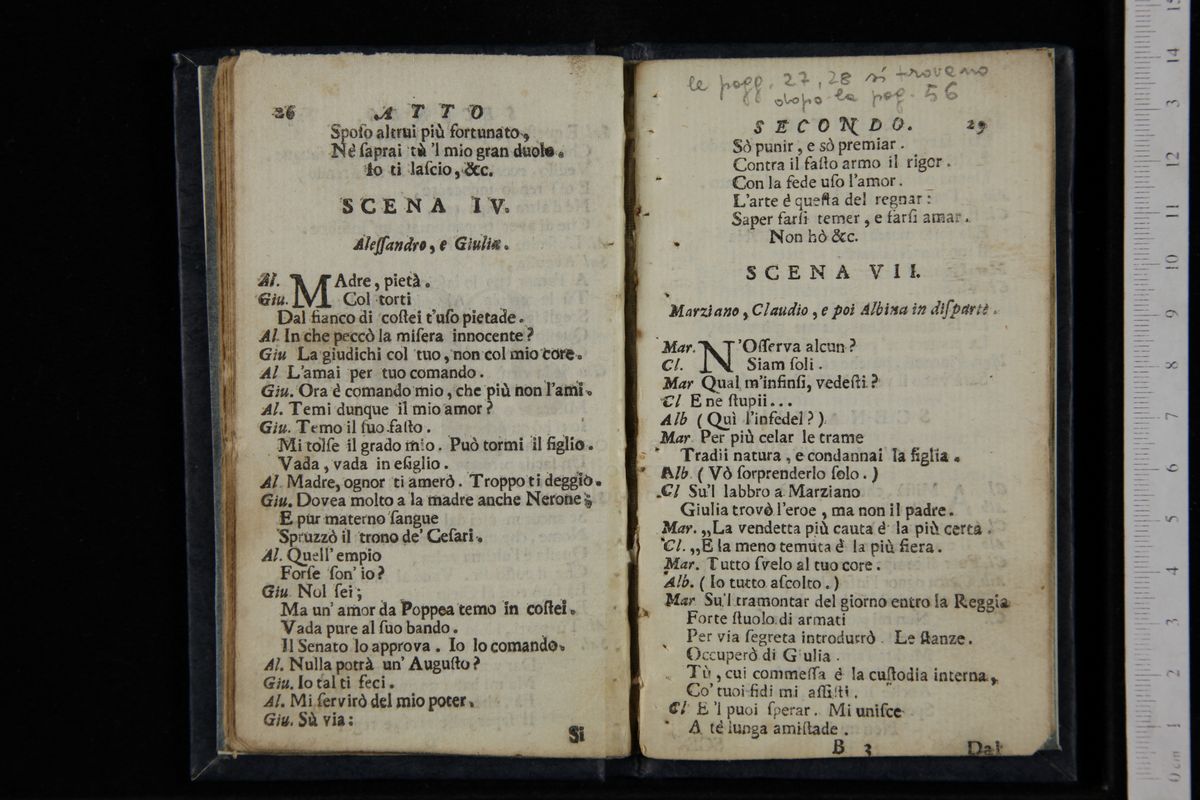 26 ATTO
Sposo altrui più fortunato,
Nè saprai tù 'l mio gran duolo.
Io ti lascio, &c.
SCENA IV.
Alessandro, e Giulia.
Al. MAdre, pietà.
Giu. Col torti
Dal fianco di costei t'uso pietade.
Al In che peccò la misera innocente?
Giu La giudichi col tuo, non col mio core.
Al L'amai per tuo comando.
Giu. Ora è comando mio, che più non l'ami.
Al. Temi dunque il mio amor?
Giu. Temo il suo fasto.
Mi tolse il grado mio. Può tormi il figlio.
Vada, vada in esiglio.
Al Madre, ognor ti amerò. Troppo ti deggio.
Giu. Dovea molto a la madre anche Nerone;
E pur materno sangue
Spruzzò il trono de' Cesari.
Al. Quell' empio
Forse son' io?
Giu Nol sei;
Ma un' amor da Poppea temo in costei.
Vada pure al suo bando.
Il Senato lo approva. Io lo comando.
Al. Nulla potrà un' Augusto?
Giu. Io tal ti feci.
Al. Mi servirò del mio poter.
Giu. Sù via:
Si
le pagg. 27, 28 si trovano
dopo la pag. 56
SECONDO. 29
Sò punir, e sò premiar.
Contra il fasto armo il rigor.
Con la fede uso l'amor.
L'arte è questa del regnar:
Saper farsi temer, e farsi amar.
Non hò &c.
SCENA VII.
Marziano, Claudio, e poi Albina in disparte.
Mar. N'Osserva alcun?
Cl. Siam soli.
Mar Qual m'infinsi, vedesti?
Cl E ne stupii...
Alb (Quì l'infedel?)
Mar Per più celar le trame
Tradii natura, e condannai la figlia.
Alb (Vò sorprenderlo solo.)
Cl Su'l labbro a Marziano
Giulia trovò l'eroe, ma non il padre.
Mar. „La vendetta più cauta è la più certa.
Cl. „E la meno temuta è la più fiera.
Mar. Tutto svelo al tuo core.
Alb. (Io tutto ascolto.)
Mar Su'l tramontar del giorno entro la Reggia
Forte stuolo di armati
Per via segreta introdurrò. Le stanze.
Occuperò di Giulia.
Tù, cui commessa è la custodia interna,
Co' tuoi fidi mi assisti.
Cl E 'l puoi sperar. Mi unisce
A tè lunga amistade.
B 3 Dal
0 cm 1 2 3 4 5 6 7 8 9 10 11 12 13 14 15